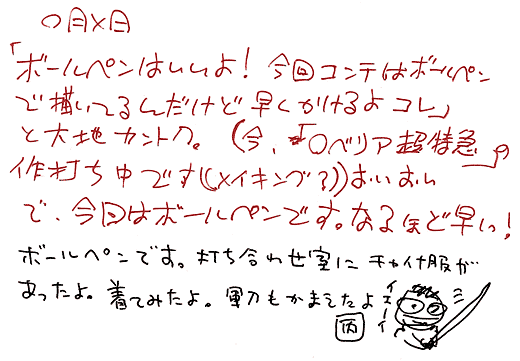 〇月×日
「ボールペンはいいよ！今回コンテはボールペン
で描いてるんだけど早くかけるよコレ」
と大地カントク。(今、「〇ベリア超特急」の
作打ち中です(メイキング？))おいおい
で、今回はボールペンです。なるほど早いっ！
ボールペンです。打ち合わせ室にチャイナ服が
あったよ。着てみたよ。軍刀もかまえたよ
イエーイ
丙